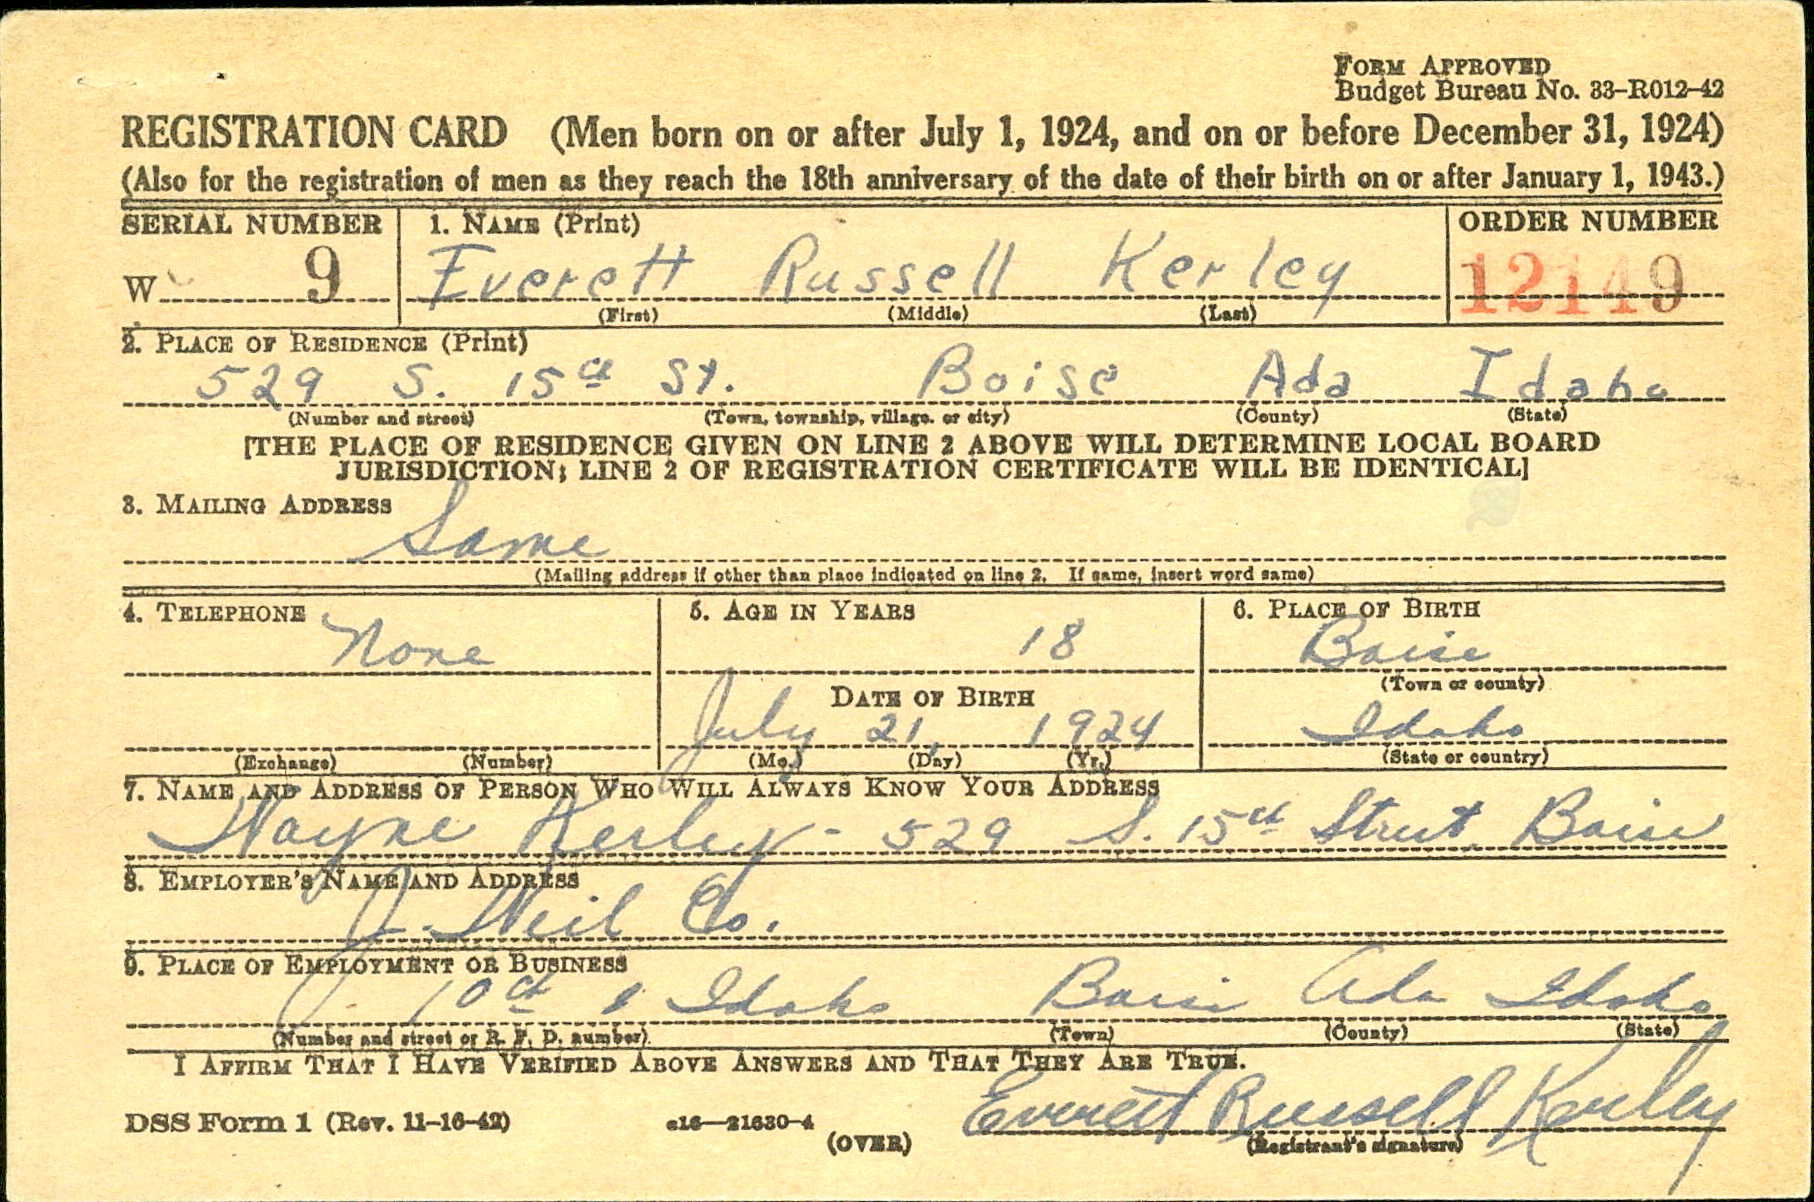 FORM APPROVED
Budget Bureau No. 33-R012-42
REGISTRATION CARD (Men born on or after July 1, 1924, and on or before December 31, 1924)
(Also for the registration of men as they reach the 18th anniversary of the date of their birth on or after January 1, 1943.)
SERIAL NUMBER 1. NAME (Print) ORDER NUMBER
W 9 Everett Russell Kerley 12149
(First) (Middle) (Last)
2. PLACE OF RESIDENCE (Print)
529 S. 15th St. Boise Ada Idaho
(Number and street) (Town, township, village, or city) (County) (State)
[THE PLACE OF RESIDENCE GIVEN ON LINE 2 ABOVE WILL DETERMINE LOCAL BOARD
JURISDICTION; LINE 2 OF REGISTRATION CERTIFICATE WILL BE IDENTICAL]
3. MAILING ADDRESS
Same
(Mailing address if other than place indicated on line 2. If same, insert word same)
4. TELEPHONE 5. AGE IN YEARS 6. PLACE OF BIRTH
None 18 Boise
(Town or county)
DATE OF BIRTH
July 21, 1924 Idaho
(Exchange) (Number) (Mo.) (Day) (Yr.) (State or country)
7. NAME AND ADDRESS OF PERSON WHO WILL ALWAYS KNOW YOUR ADDRESS
Wayne Kerley - 529 S. 15th Street, Boise
8. EMPLOYER'S NAME AND ADDRESS
J. Weil Co.
9. PLACE OF EMPLOYMENT OR BUSINESS
10th & Idaho Boise Ada Idaho
(Number and street or R. F. D. number) (Town) (County) (State)
I AFFIRM THAT I HAVE VERIFIED ABOVE ANSWERS AND THAT THEY ARE TRUE.
Everett Russell Kerley
DSS Form 1 (Rev. 11-16-42) 16—21630-4 (OVER) (Registrant's signature)